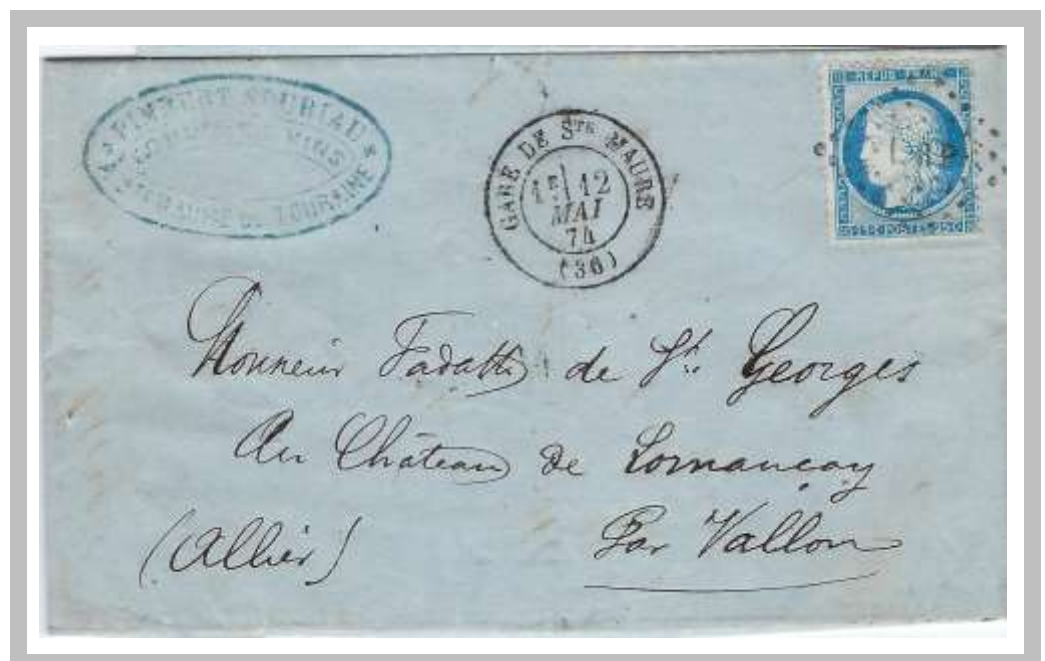 SOURIAU
VINS
TOURAINE
GARE DE STE MAURE
1E 12
MAI
74
(36)
REPUB FRANC
25c POSTES 25c
Monsieur de St. Georges
Au Château de Lomançay
(Allier) Par Vallon